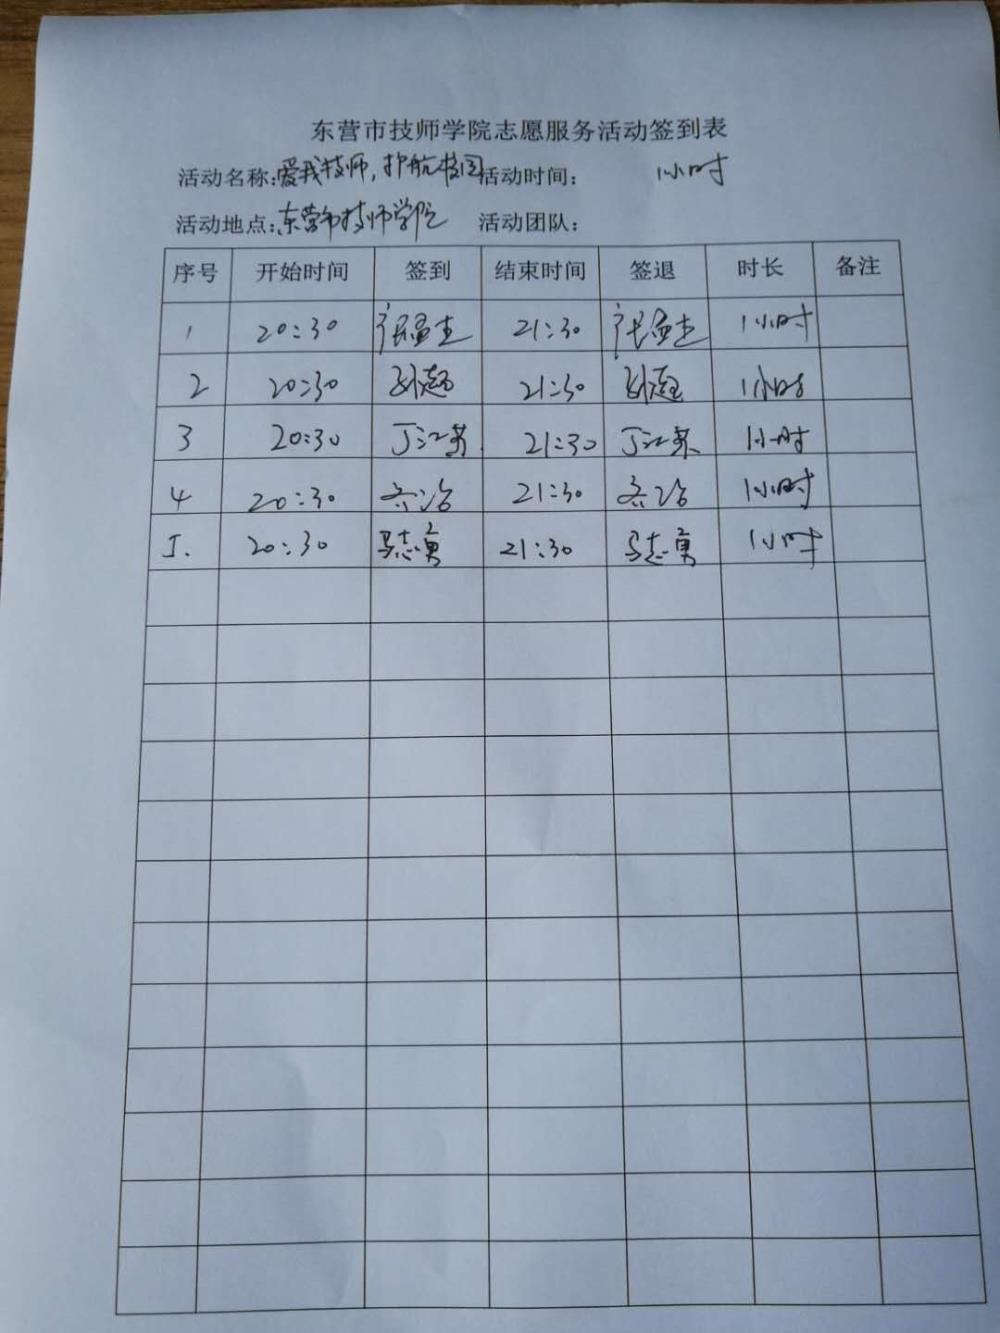 东营市技师学院志愿服务活动签到表
活动名称:爱我技师,护航校园 活动时间: 1小时
活动地点:东营市技师学院 活动团队:
序号 开始时间 签到 结束时间 签退 时长 备注
1 20:30 21:30 1小时
2 20:30 21:30 1小时
3 20:30 丁江苏 21:30 丁江苏 1小时
4 20:30 21:30 1小时
5. 20:30 马志勇 21:30 马志勇 1小时